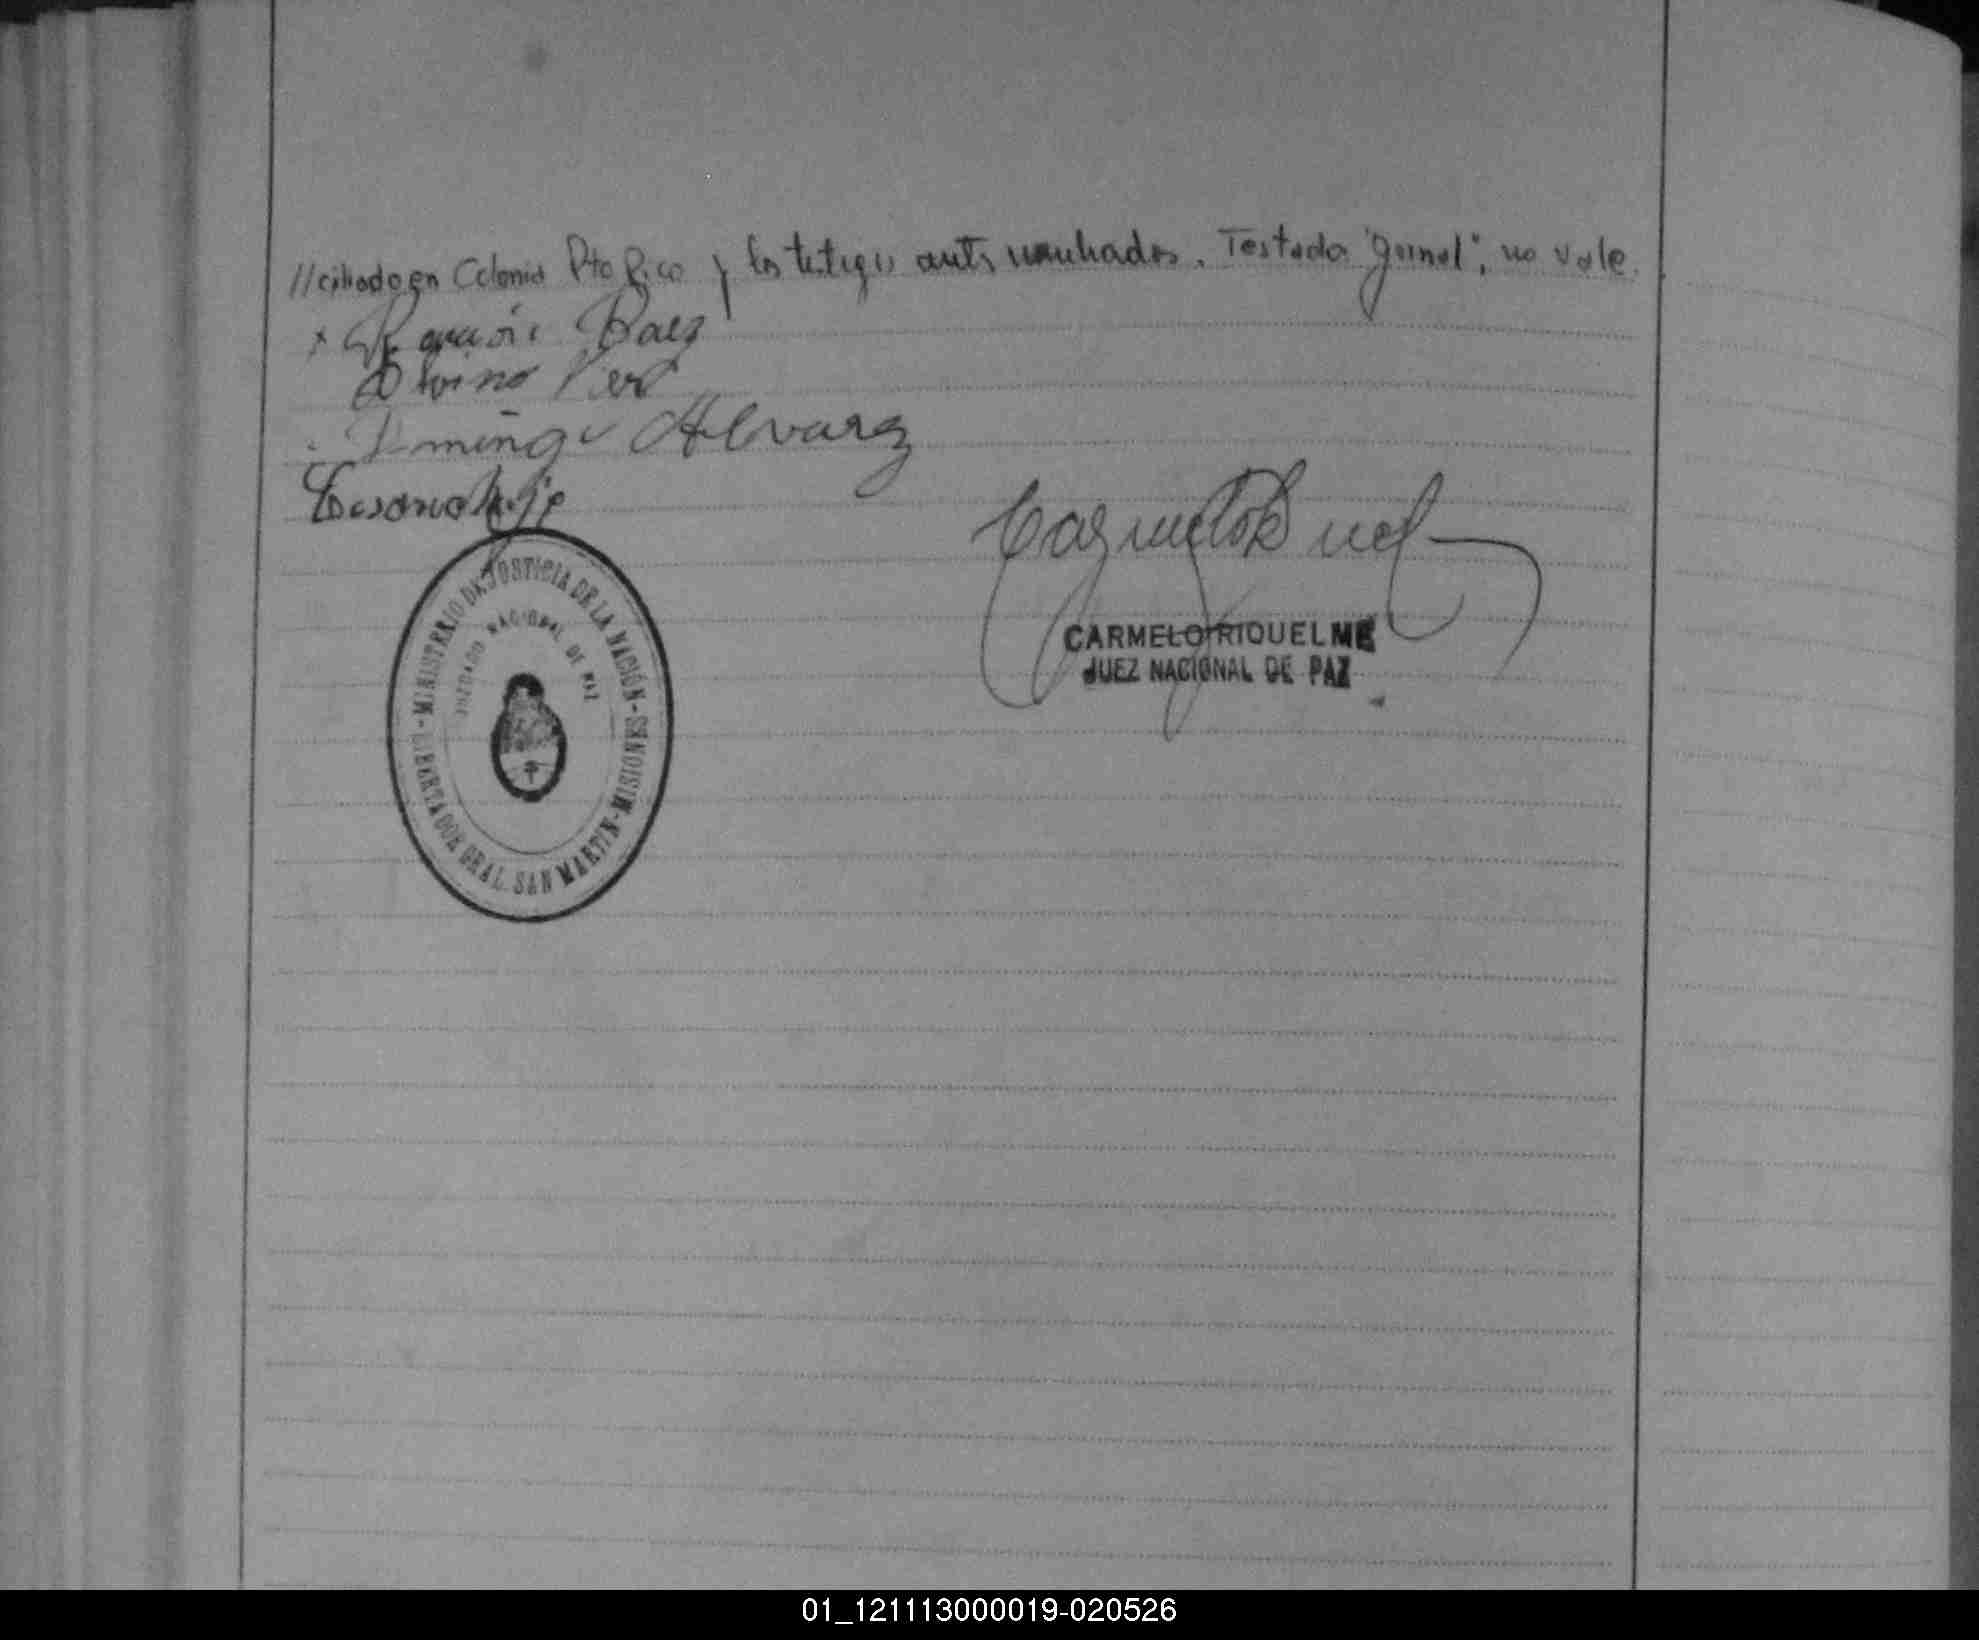 //ciliado en Colonia Pto Rico y los testigos antes nombrados. Testado "jornal", no vale.
x Ramón Baez
Domingo Alvarez
CARMELO RIQUELME
JUEZ NACIONAL DE PAZ
MINISTERIO DE JUSTICIA DE LA NACIÓN - MISIONES - LIBERTADOR GRAL. SAN MARTIN -
JUZGADO NACIONAL DE PAZ
01_121113000019-020526